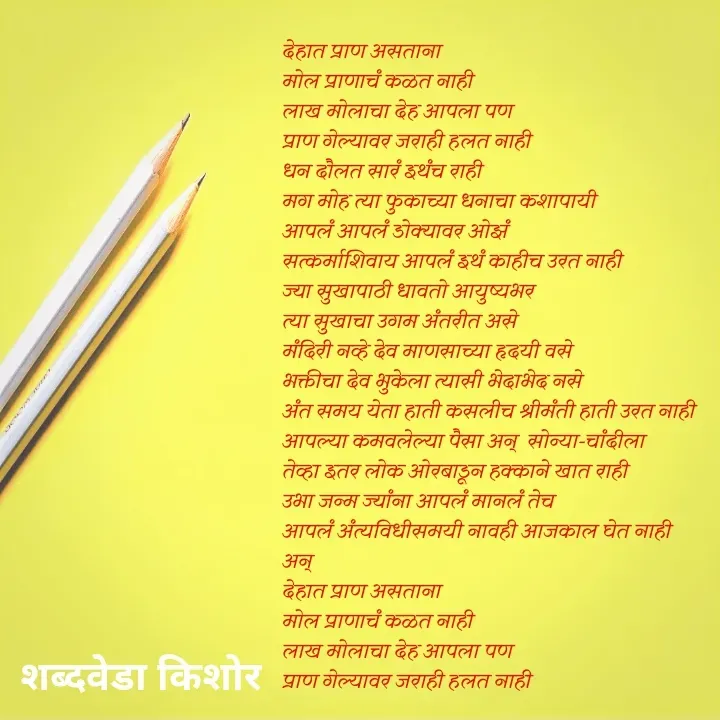 देहात प्राण असताना
मोल प्राणाचं कळत नाही
लाख मोलाचा देह आपला पण
प्राण गेल्यावर जराही हलत नाही
धन दौलत सारं इथंच राही
मग मोह त्या फुकाच्या धनाचा कशापायी
आपलं आपलं डोक्यावर ओझं
सत्कर्माशिवाय आपलं इथं काहीच उरत नाही
ज्या सुखापाठी धावतो आयुष्यभर
त्या सुखाचा उगम अंतरीत असे
मंदिरी नव्हे देव माणसाच्या हृदयी वसे
भक्तीचा देव भुकेला त्यासी भेदाभेद नसे
अंत समय येता हाती कसलीच श्रीमंती हाती उरत नाही
आपल्या कमवलेल्या पैसा अन् सोन्या-चांदीला
तेव्हा इतर लोक ओरबाडून हक्काने खात राही
उभा जन्म ज्यांना आपलं मानलं तेच
आपलं अंत्यविधीसमयी नावही आजकाल घेत नाही
अन्
देहात प्राण असताना
मोल प्राणाचं कळत नाही
लाख मोलाचा देह आपला पण
प्राण गेल्यावर जराही हलत नाही
शब्दवेडा किशोर